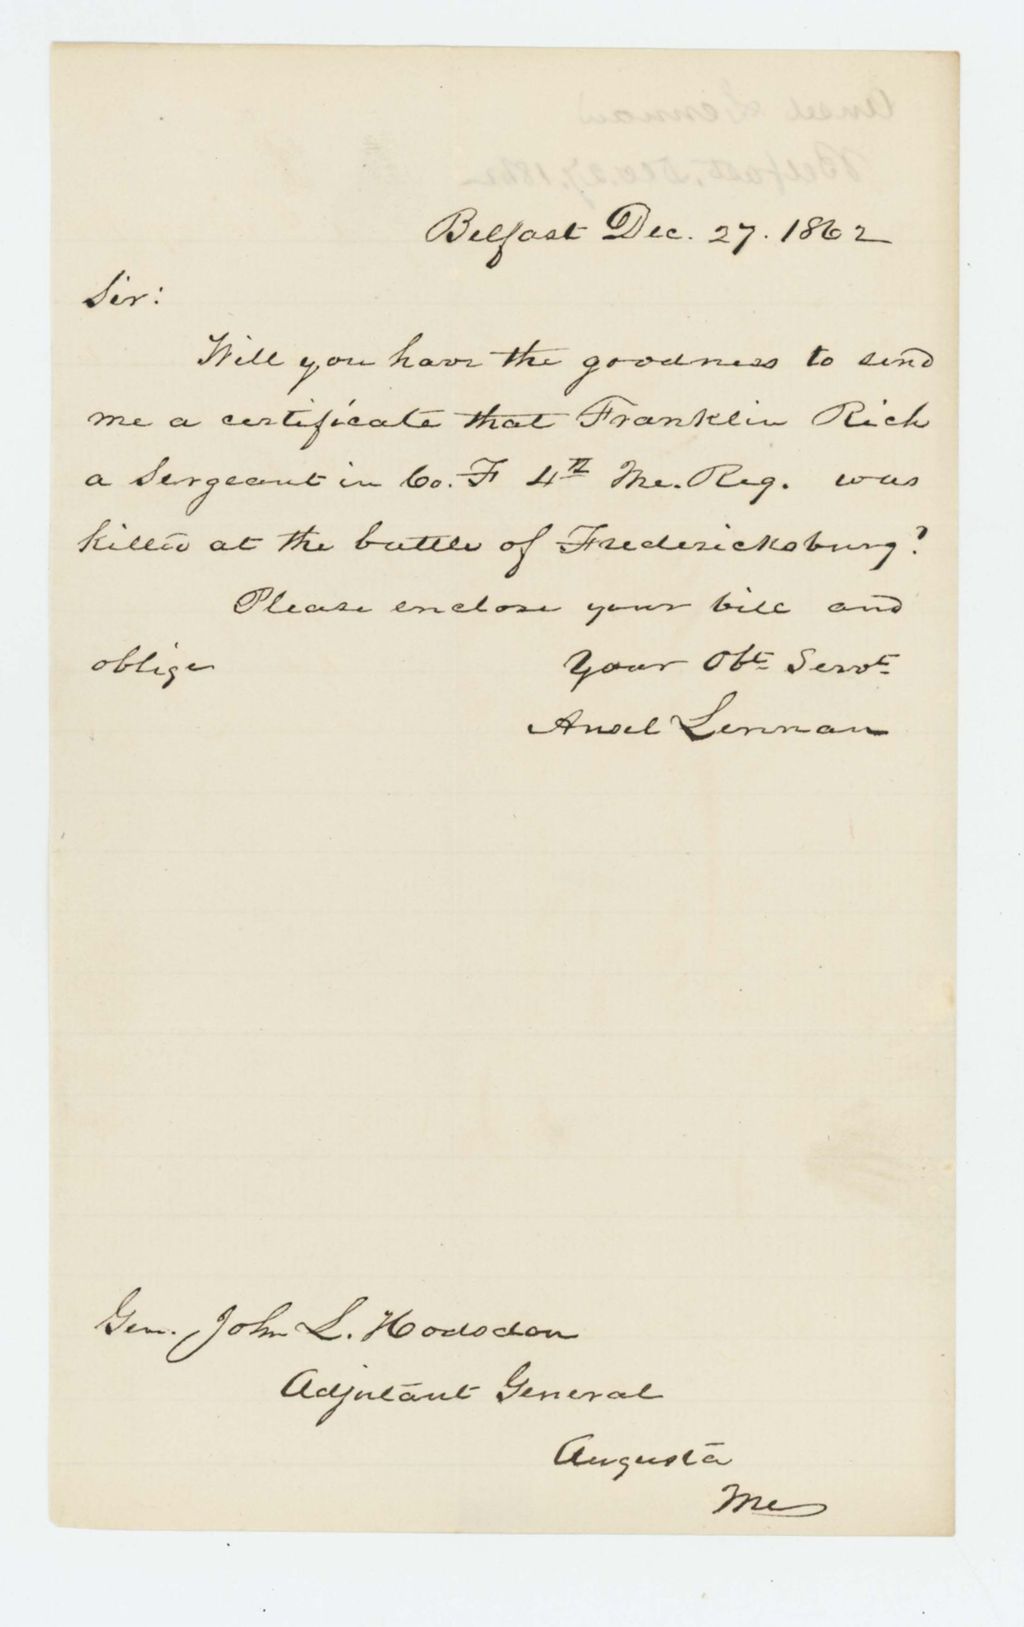 Belfast Dec. 27. 1862
Sir:
Will you have the goodness to send
me a certificate that Franklin Rich
a Sergeant in Co. F 4th Me. Reg. was
killed at the battle of Fredericksburg?
Please enclose your bill and
oblige Your Obt Servt
Ansel Lennan
Gen. John L. Hodsdon
Adjutant General
Augusta
Me